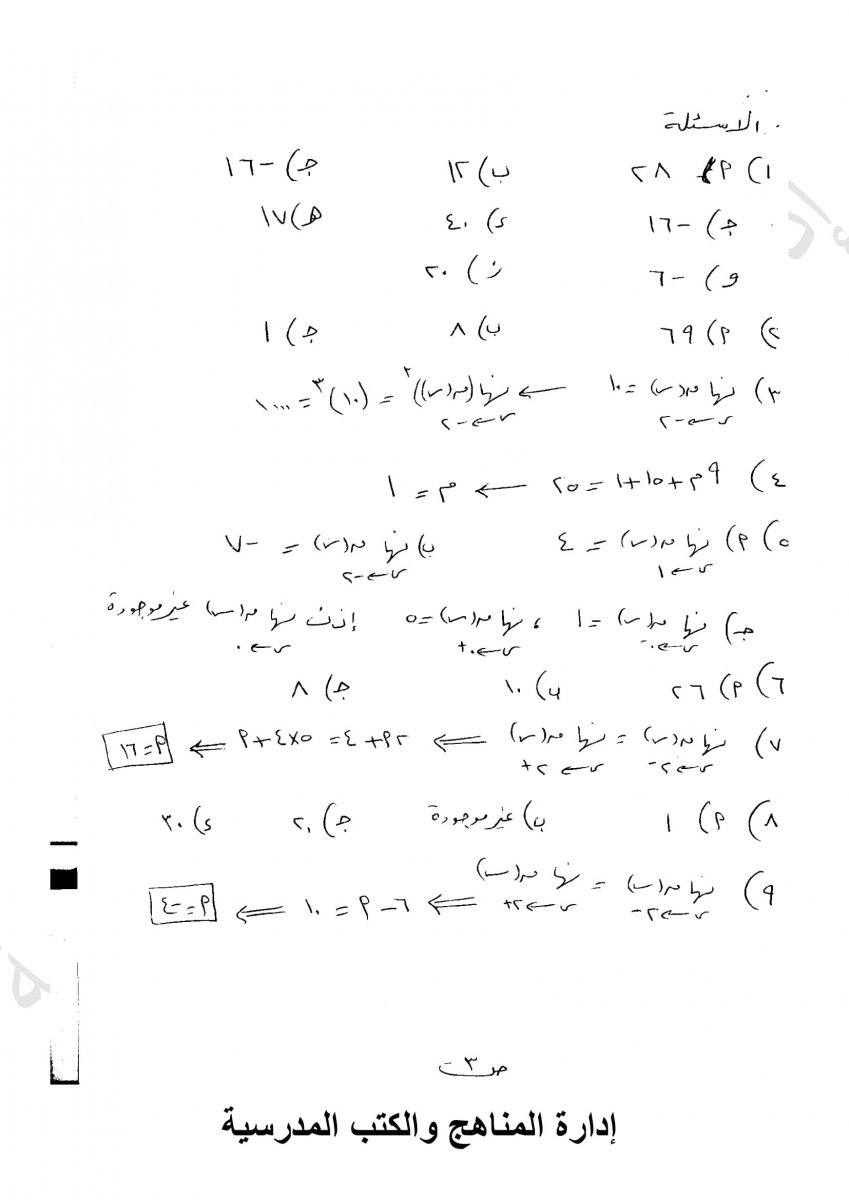 الاسئلة
١) P) ٢٨ ب) ١٢ جـ) -١٦
جـ) -١٦ ء) ٤٠ هـ) ١٧
و) -٦ ز) ٢٠
٢) P) ٦٩ ب) ٨ جـ) ١
٣) نهــا ق(س) = ١٠ ← نهــا (ق(س))^٣ = (١٠)^٣ = ١٠٠٠
س←-٢ س←-٢
٤) ٩م + ١٥ + ١ = ٢٥ ← م = ١
٥) P) نهــا ق(س) = ٤ ب) نهــا ق(س) = -٧
س←١ س←-٢
جـ) نهــا ق(س) = ١ ، نهــا ق(س) = ٥ إذن نهــا ق(س) غير موجودة
س←٠- س←٠+ س←٠
٦) P) ٢٦ ب) ١٠ جـ) ٨
٧) نهــا ق(س) = نهــا ق(س) ⇐ ٢P + ٤ = ٥×٤ + P ⇐ P = ١٦
س←٢- س←٢+
٨) P) ١ ب) غير موجودة جـ) ٢٠ ء) ٣٠
٩) نهــا ق(س) = نهــا ق(س) ⇐ ٦ - P = ١٠ ⇐ P = -٤
س←٢- س←٢+
ص٣
إدارة المناهج والكتب المدرسية